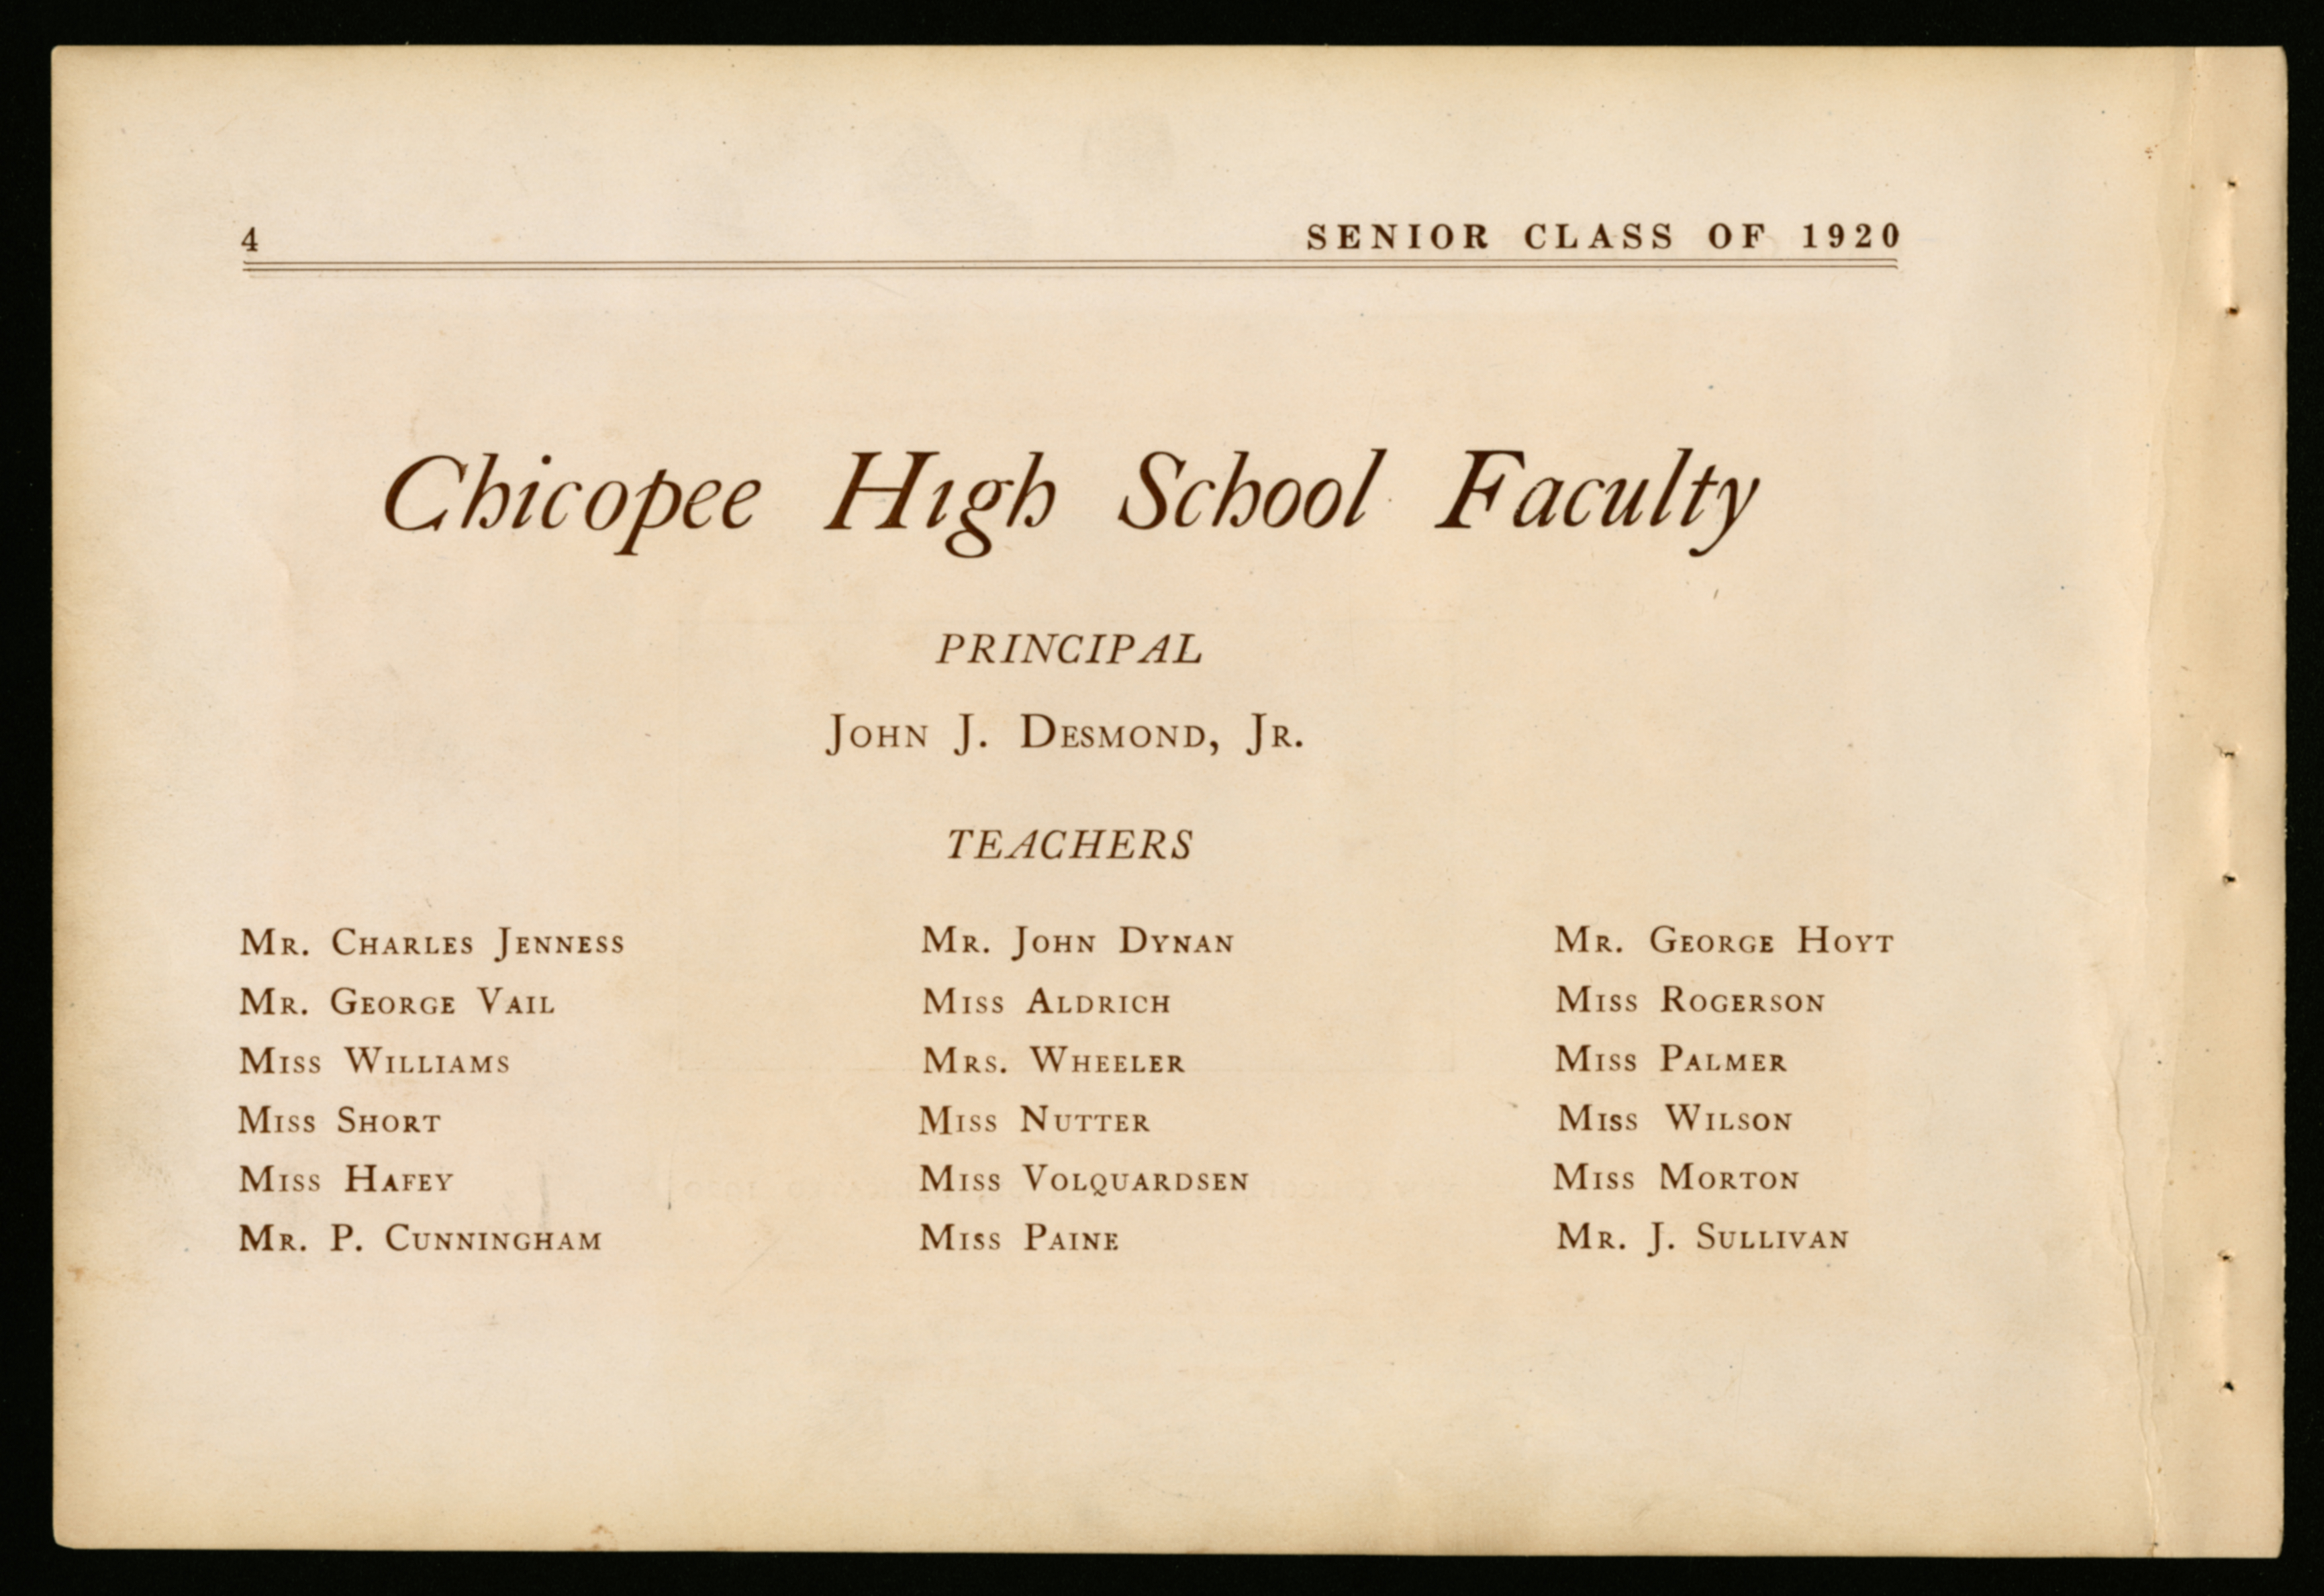 4 SENIOR CLASS OF 1920
Chicopee High School Faculty
PRINCIPAL
JOHN J. DESMOND, JR.
TEACHERS
MR. CHARLES JENNESS
MR. GEORGE VAIL
MISS WILLIAMS
MISS SHORT
MISS HAFEY
MR. P. CUNNINGHAM
MR. JOHN DYNAN
MISS ALDRICH
MRS. WHEELER
MISS NUTTER
MISS VOLQUARDSEN
MISS PAINE
MR. GEORGE HOYT
MISS ROGERSON
MISS PALMER
MISS WILSON
MISS MORTON
MR. J. SULLIVAN